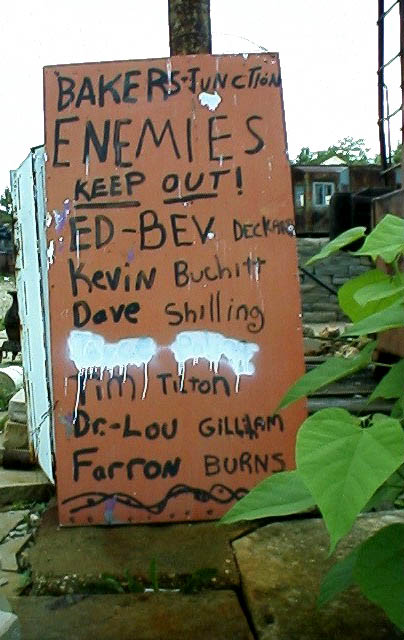 BAKERS JUNCTION
ENEMIES
KEEP OUT!
ED-BEV DECKARD
Kevin Buchitt
Dave Shilling
Tim Tilton
Dr.-Lou GILLHAM
Farron BURNS